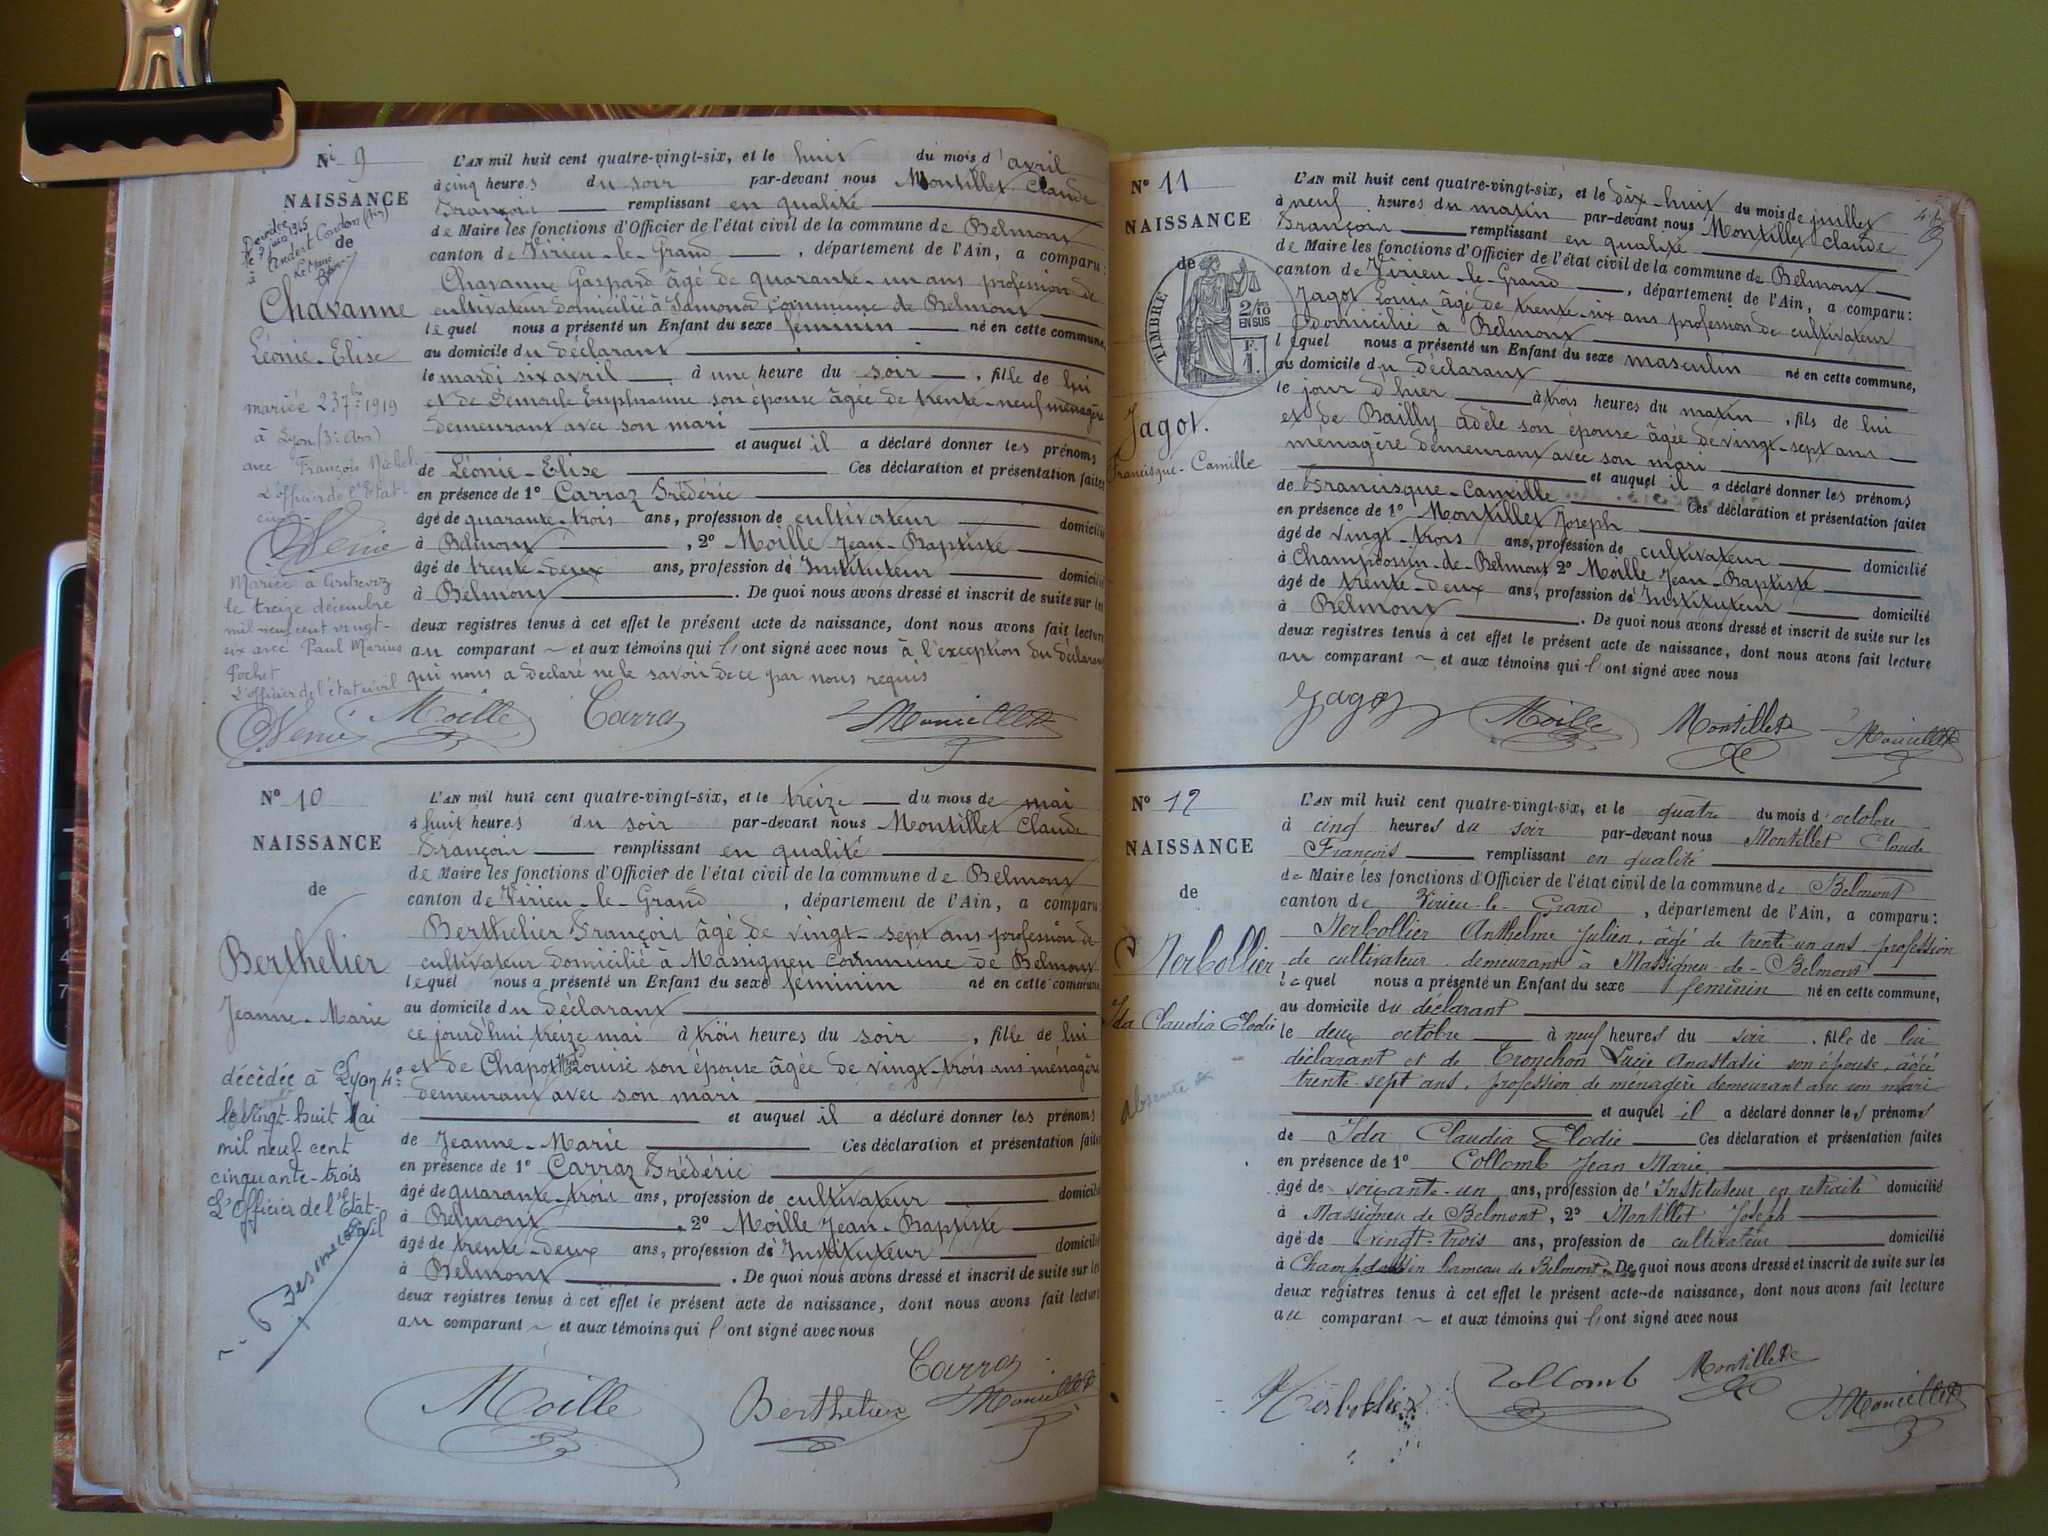 N° 9
NAISSANCE
de
Chavanne
Léonie-Elise
mariée 23 7bre 1919
à Lyon (3e Arr)
avec François Michel
L'officier de l'Etat-
civil
Mariée à Contrevoz
le treize décembre
mil neuf cent vingt-
six avec Paul Marius
Pochet
L'officier de l'état civil
L'AN mil huit cent quatre-vingt-six, et le huit du mois d'avril
à cinq heures du soir par-devant nous Montillet Claude
François remplissant en qualité
de Maire les fonctions d'Officier de l'état civil de la commune de Belmont
canton de Virieu-le-Grand, département de l'Ain, a comparu:
Chavanne Gaspard âgé de quarante-un ans profession de
cultivateur domicilié à Samonod commune de Belmont
lequel nous a présenté un Enfant du sexe féminin né en cette commune,
au domicile du déclarant
le mardi six avril à une heure du soir, fille de lui
et de son épouse âgée de trente-neuf ménagère
demeurant avec son mari
et auquel il a déclaré donner les prénoms
de Léonie-Elise Ces déclaration et présentation faites
en présence de 1° Carraz Frédéric
âgé de quarante-trois ans, profession de cultivateur domicilié
à Belmont, 2° Moille Jean-Baptiste
âgé de trente-deux ans, profession d'Instituteur domicilié
à Belmont. De quoi nous avons dressé et inscrit de suite sur les
deux registres tenus à cet effet le présent acte de naissance, dont nous avons fait lecture
au comparant ~ et aux témoins qui l'ont signé avec nous à l'exception du déclarant
qui nous a déclaré ne le savoir de ce par nous requis
Moille Carraz Montillet
N° 10
NAISSANCE
de
Berthelier
Jeanne-Marie
décédée à Lyon 4e
le vingt-huit Mai
mil neuf cent
cinquante-trois
L'Officier de l'Etat-
Civil
L'AN mil huit cent quatre-vingt-six, et le treize du mois de mai
à huit heures du soir par-devant nous Montillet Claude
François remplissant en qualité
de Maire les fonctions d'Officier de l'état civil de la commune de Belmont
canton de Virieu-le-Grand, département de l'Ain, a comparu:
Berthelier François âgé de vingt-sept ans profession de
cultivateur domicilié à Massignieu commune de Belmont
lequel nous a présenté un Enfant du sexe féminin né en cette commune
au domicile du déclarant
ce jourd'hui treize mai à trois heures du soir, fille de lui
et de Chapot Louise son épouse âgée de vingt-trois ans ménagère
demeurant avec son mari
et auquel il a déclaré donner les prénoms
de Jeanne-Marie Ces déclaration et présentation faites
en présence de 1° Carraz Frédéric
âgé de quarante-trois ans, profession de cultivateur domicilié
à Belmont, 2° Moille Jean-Baptiste
âgé de trente-deux ans, profession d'Instituteur domicilié
à Belmont. De quoi nous avons dressé et inscrit de suite sur les
deux registres tenus à cet effet le présent acte de naissance, dont nous avons fait lecture
au comparant ~ et aux témoins qui l'ont signé avec nous
Carraz
Moille Berthelier Montillet
N° 11
NAISSANCE
de
TIMBRE
2/10
EN SUS
F.
1.
Jagot.
Francisque-Camille
L'AN mil huit cent quatre-vingt-six, et le dix-huit du mois de juillet
à neuf heures du matin par-devant nous Montillet Claude
François remplissant en qualité
de Maire les fonctions d'Officier de l'état civil de la commune de Belmont
canton de Virieu-le-Grand, département de l'Ain, a comparu:
Jagot Louis âgé de trente-six ans profession de cultivateur
domicilié à Belmont
lequel nous a présenté un Enfant du sexe masculin né en cette commune,
au domicile du déclarant
le jour d'hier à trois heures du matin, fils de lui
et de Bailly adèle son épouse âgée de vingt-sept ans
ménagère demeurant avec son mari
et auquel il a déclaré donner les prénoms
de Francisque-Camille Ces déclaration et présentation faites
en présence de 1° Montillet Joseph
âgé de vingt-trois ans, profession de cultivateur domicilié
à Champdossin-de-Belmont 2° Moille Jean-Baptiste
âgé de trente-deux ans, profession d'Instituteur domicilié
à Belmont. De quoi nous avons dressé et inscrit de suite sur les
deux registres tenus à cet effet le présent acte de naissance, dont nous avons fait lecture
au comparant ~ et aux témoins qui l'ont signé avec nous
Jagot Moille Montillet Montillet
N° 12
NAISSANCE
de
Nerbollier
Ida Claudia Elodie
absente
L'AN mil huit cent quatre-vingt-six, et le quatre du mois d'octobre
à cinq heures du soir par-devant nous Montillet Claude
François remplissant en qualité
de Maire les fonctions d'Officier de l'état civil de la commune de Belmont
canton de Virieu-le-Grand, département de l'Ain, a comparu:
Nerbollier Anthelme Julien, âgé de trente-un ans, profession
de cultivateur demeurant à Massigneu-de-Belmont
lequel nous a présenté un Enfant du sexe féminin né en cette commune,
au domicile du déclarant
le deux octobre à neuf heures du soir, fille de lui
déclarant et de Tronchon Lucie Anastasie son épouse, âgée
trente-sept ans, profession de ménagère demeurant avec son mari
et auquel il a déclaré donner les prénoms
de Ida Claudia Elodie Ces déclaration et présentation faites
en présence de 1° Collomb Jean Marie
âgé de soixante-un ans, profession d'Instituteur en retraite domicilié
à Massigneu de Belmont, 2° Montillet Joseph
âgé de vingt-trois ans, profession de cultivateur domicilié
à Champdossin hameau de Belmont. De quoi nous avons dressé et inscrit de suite sur les
deux registres tenus à cet effet le présent acte de naissance, dont nous avons fait lecture
au comparant ~ et aux témoins qui l'ont signé avec nous
Nerbollier Collomb Montillet Montillet